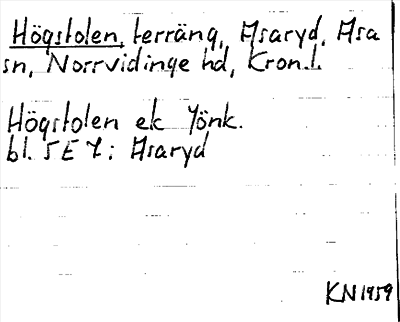 Högstolen, terräng, Asaryd, Asa
sn, Norrvidinge hd, Kron.l.
Högstolen ek Jönk.
bl. 5E7: Asaryd
KN 1959